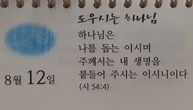 도우시는 하나님
하나님은
나를 돕는 이시며
주께서는 내 생명을
붙들어 주시는 이시니이다
(시 54:4)
8월 12일